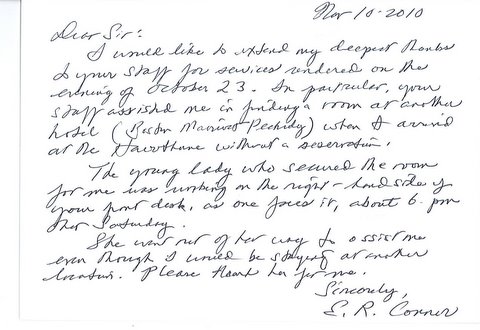 Nov 10-2010
Dear Sir:
I would like to extend my deepest thanks
to your staff for services rendered on the
evening of October 23. In particular, your
staff assisted me in finding a room at another
hotel (Boston Marriott Peabody) when I arrived
at the Hawthorne without a reservation.
The young lady who secured the room
for me was working on the right-hand side of
your front desk, as one faces it, about 6 pm
that Saturday.
She went out of her way to assist me
even though I would be staying at another
location. Please thank her for me.
Sincerely,
E. R. Conner